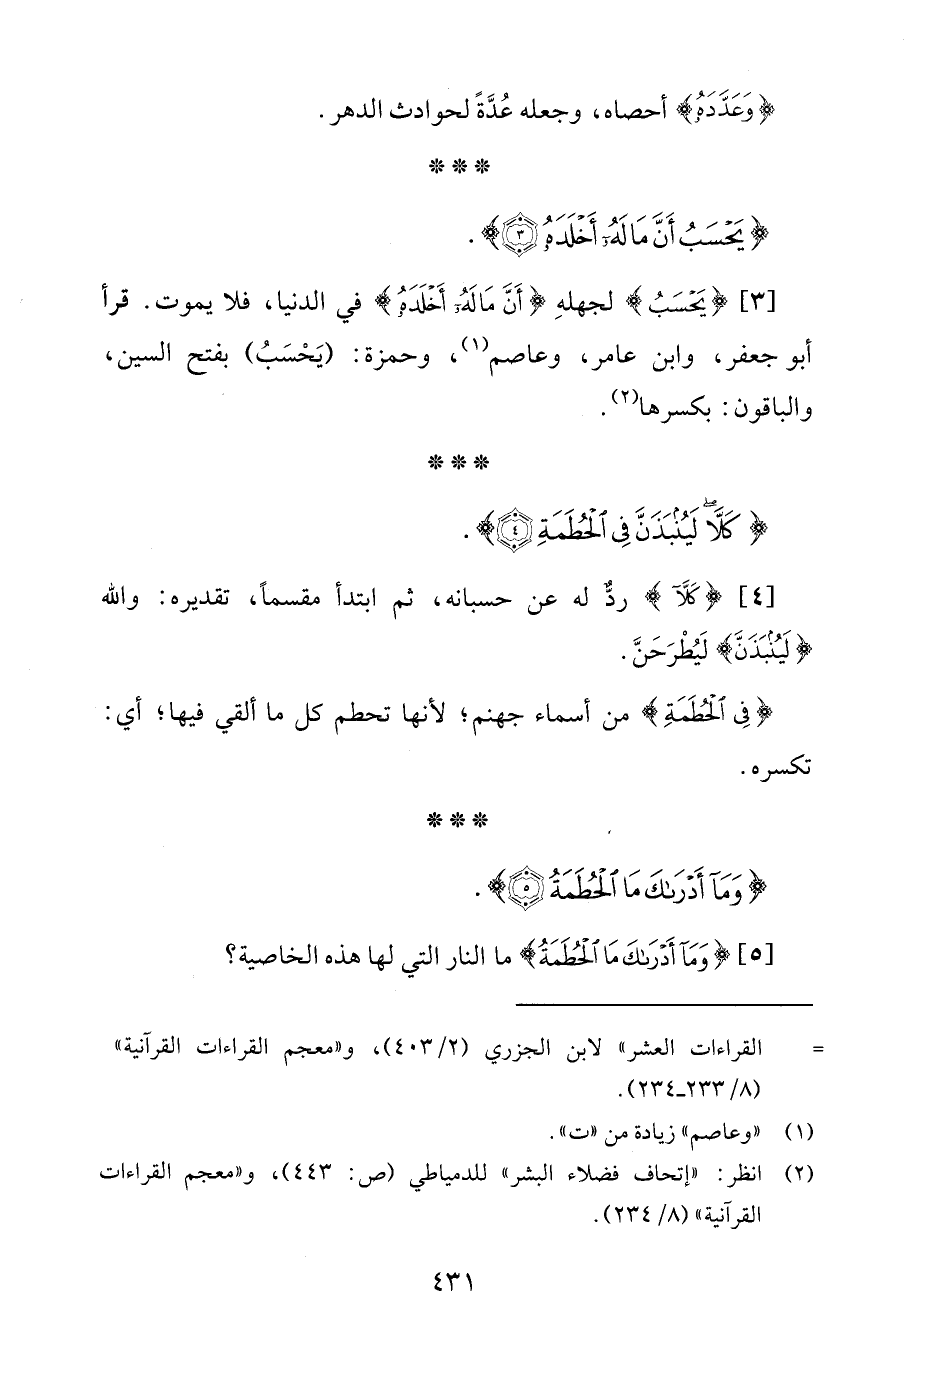 ﴿وَعَدَّدَهُۥ﴾ أحصاه، وجعله عُدَّةً لحوادث الدهر.
* * *
﴿يَحْسَبُ أَنَّ مَالَهُۥٓ أَخْلَدَهُۥ ٣﴾.
[٣] ﴿يَحْسَبُ﴾ لجهلهِ ﴿أَنَّ مَالَهُۥٓ أَخْلَدَهُۥ﴾ في الدنيا، فلا يموت. قرأ
أبو جعفر، وابن عامر، وعاصم(١)، وحمزة: (يَحْسَبُ) بفتح السين،
والباقون: بكسرها(٢).
* * *
﴿كَلَّاۖ لَيُنۢبَذَنَّ فِى ٱلْحُطَمَةِ ٤﴾.
[٤] ﴿كَلَّآ﴾ ردٌّ له عن حسبانه، ثم ابتدأ مقسماً، تقديره: والله
﴿لَيُنۢبَذَنَّ﴾ لَيُطْرَحَنَّ.
﴿فِى ٱلْحُطَمَةِ﴾ من أسماء جهنم؛ لأنها تحطم كل ما ألقي فيها؛ أي:
تكسره.
* * *
﴿وَمَآ أَدْرَىٰكَ مَا ٱلْحُطَمَةُ ٥﴾.
[٥] ﴿وَمَآ أَدْرَىٰكَ مَا ٱلْحُطَمَةُ﴾ ما النار التي لها هذه الخاصية؟
= القراءات العشر» لابن الجزري (٢/ ٤٠٣)، و«معجم القراءات القرآنية»
(٨/ ٢٣٣ـ٢٣٤).
(١) «وعاصم» زيادة من «ت».
(٢) انظر: «إتحاف فضلاء البشر» للدمياطي (ص: ٤٤٣)، و«معجم القراءات
القرآنية» (٨/ ٢٣٤).
٤٣١